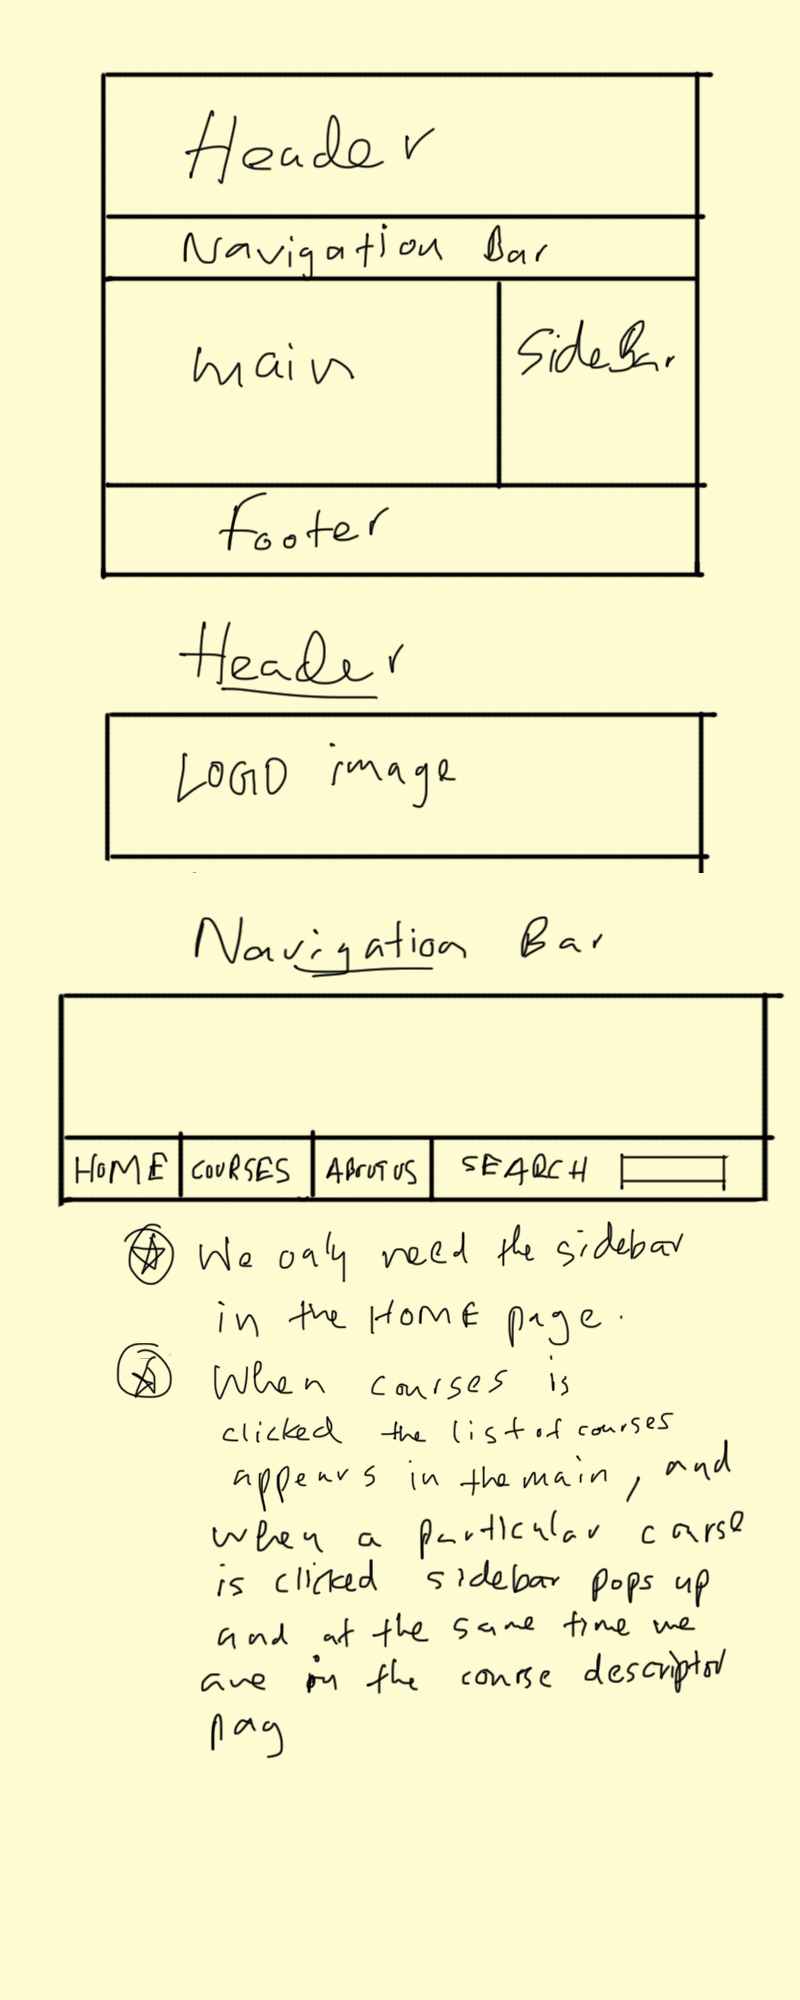 Header
Navigation Bar
main
SideBar
Footer
Header
LOGO image
Navigation Bar
HOME
COURSES
ABOUT US
SEARCH
We only need the sidebar
in the HOME page.
When courses is
clicked the list of courses
appears in the main, and
when a particular carse
is clicked sidebar pops up
and at the same time we
are in the course descriptor
pag